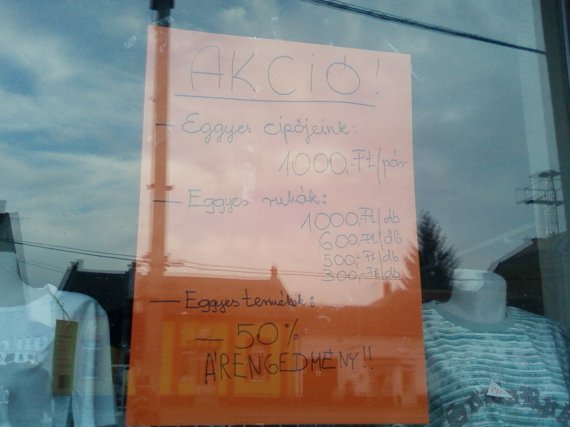 AKCIÓ!
— Eggyes cipőjeink:
1000,-Ft/pár
— Eggyes ruhák:
1000,-Ft/db
600,-Ft/db
500,-Ft/db
300,-Ft/db
— Eggyes termékek:
— 50%
ÁRENGEDMÉNY!!